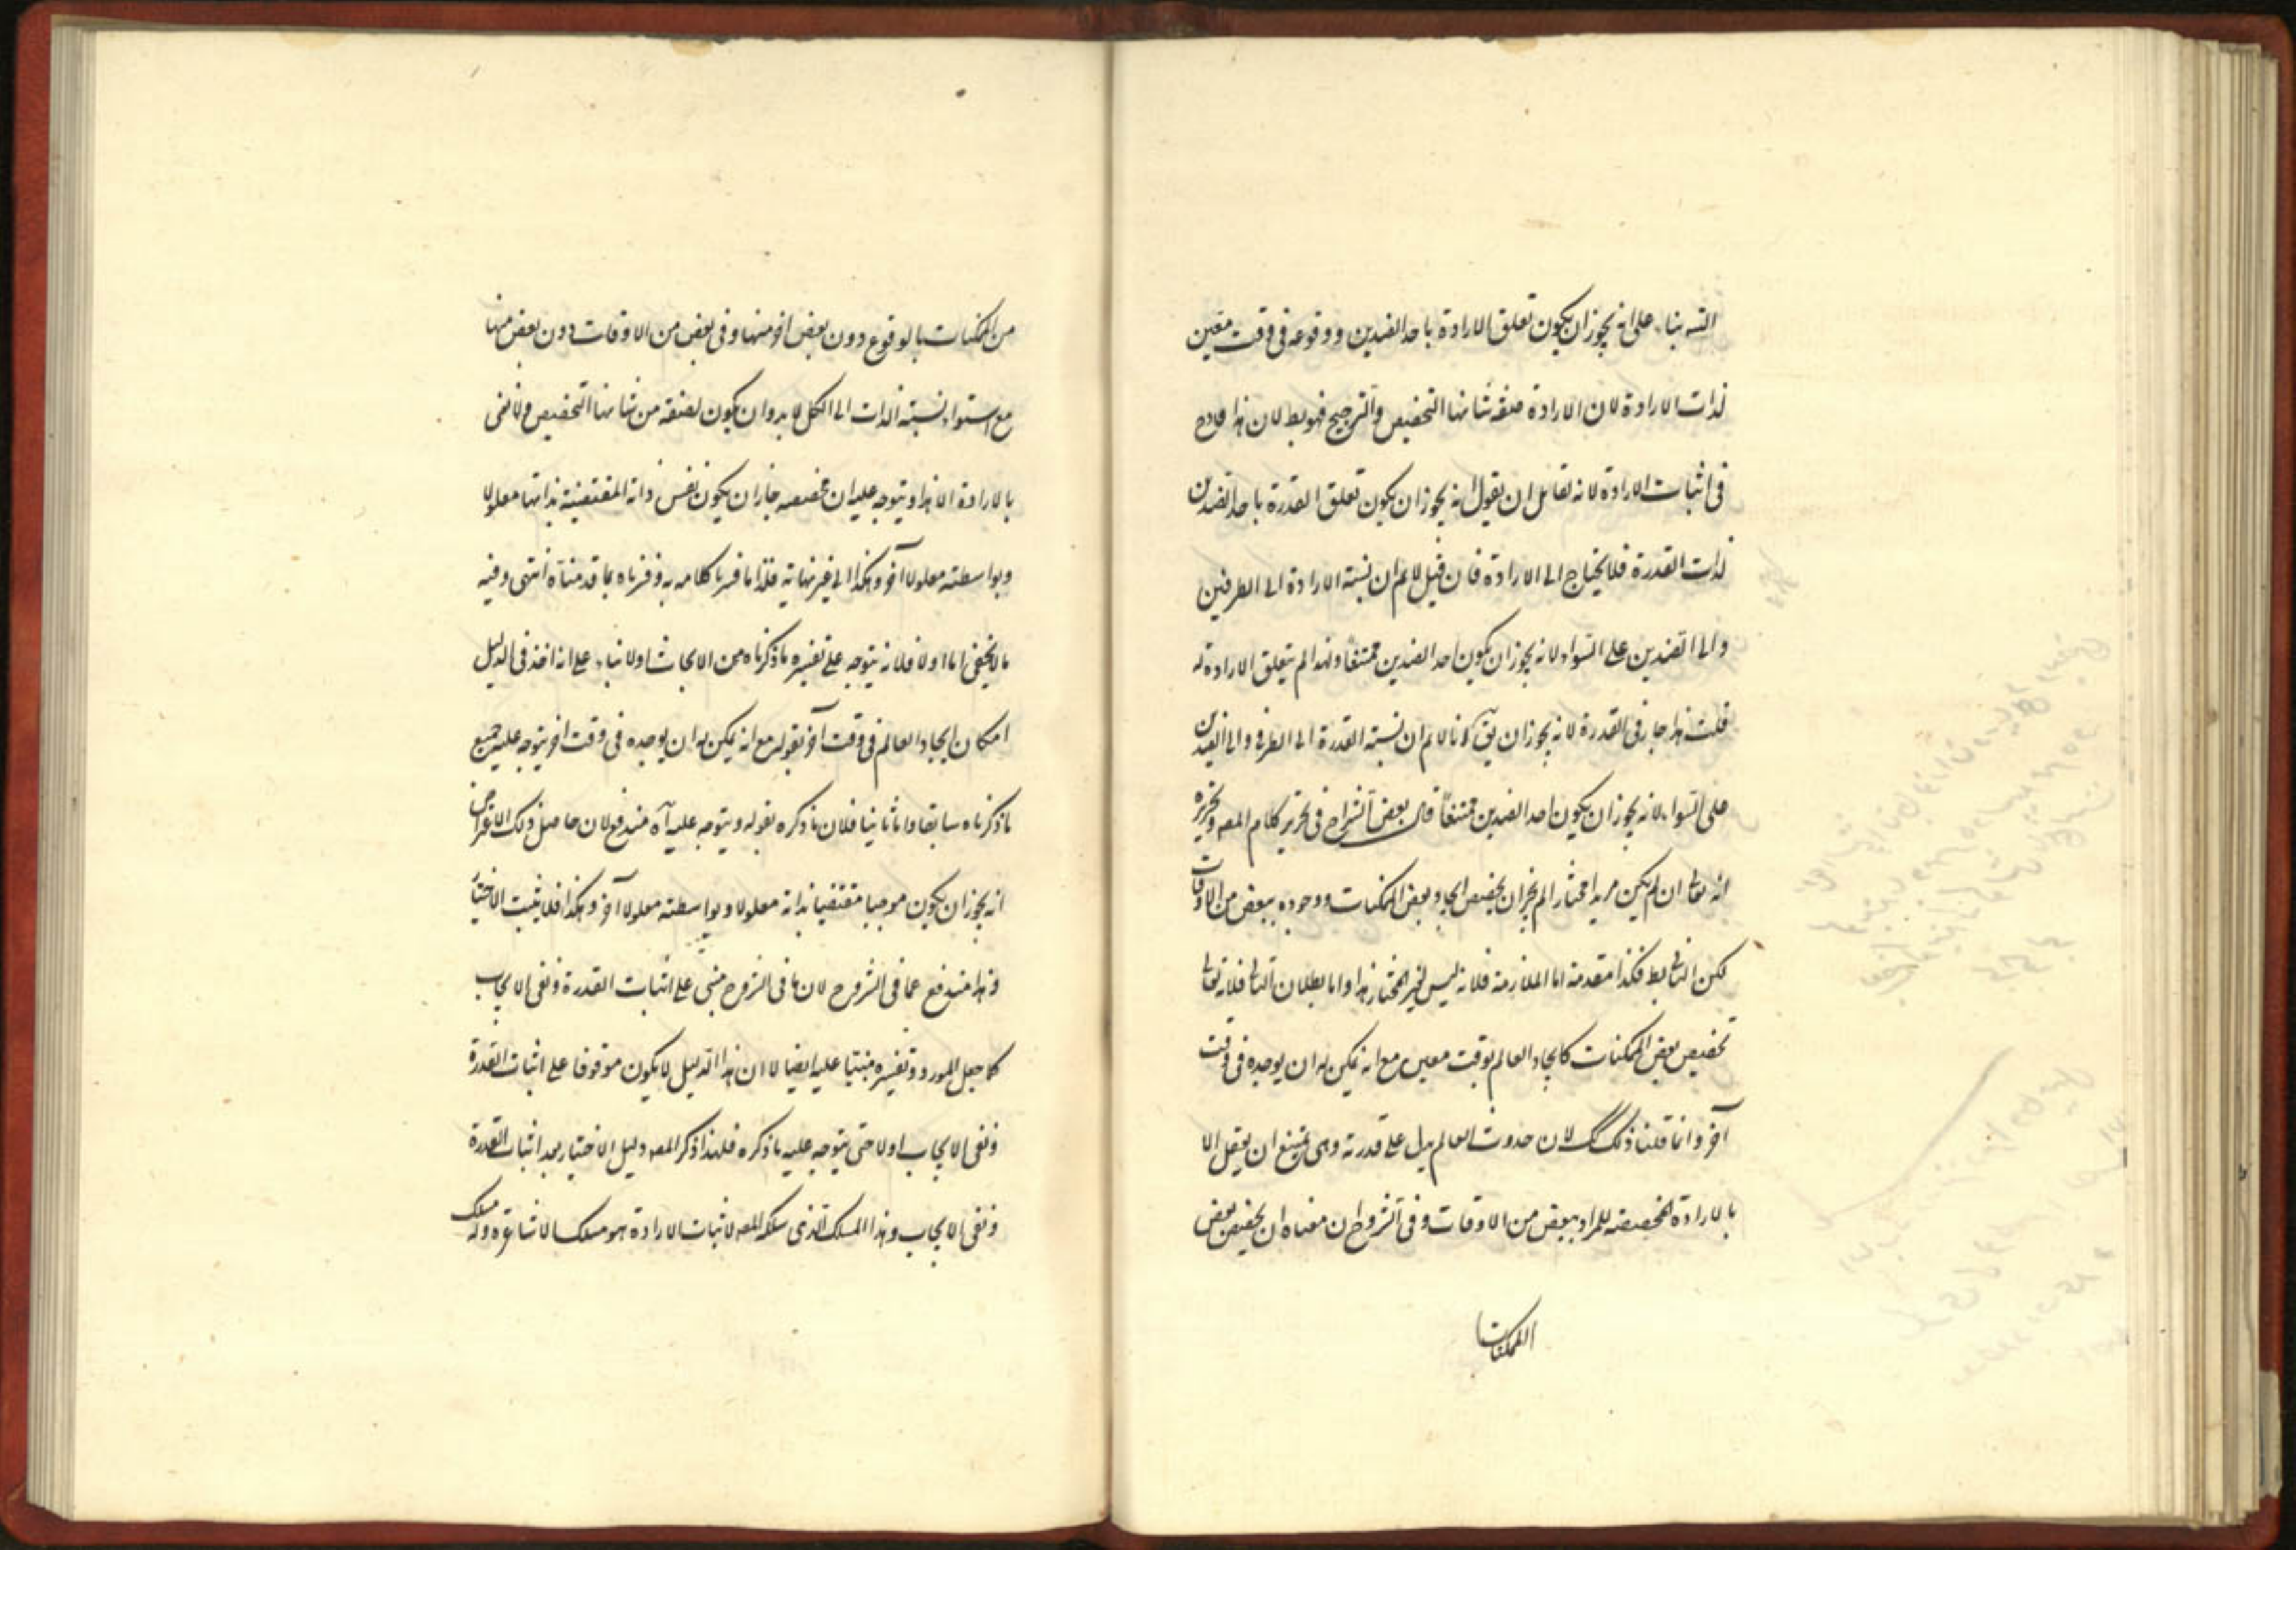 التسه بناء على انه يجوز ان يكون تعلق الارادة باحد الضدين ووقوعه في وقت معين
لذات الارادة لان الارادة صفة شانها التخصيص والترجيح فهو بط لان هذا قادح
في اثبات الارادة لانه لقائل ان يقول انه يجوز ان يكون تعلق القدرة باحد الضدين
لذات القدرة فلا يحتاج الى الارادة فان قيل لانم ان نسبة الارادة الى الطرفين
والى الضدين على السواء لانه يجوز ان يكون احد الضدين ممتنعا ولهذا لم يتعلق الارادة له
قلت هذا جار في القدرة لانه يجوز ان يق انا لانم ان نسبة القدرة الى الطرفي والى الضدين
على السواء لانه يجوز ان يكون احد الضدين ممتنعاً قال بعض الشراح في تحرير كلام المصه وتحريره
انه تعالى ان لم يكن مريدا مختارا لم يجز ان يخصص ايجاد بعض الممكنات ووجوده ببعض من الاوقات
لكن التالي بط فكذا مقدمه اما الملازمة فلانه ليس لغير المختار هذا واما بطلان التالي فلانه تعالى
تخصيص بعض الممكنات كايجاد العالم بوقت معين مع انه يمكن له ان يوجده في وقت
آخر وانما قلنا ذلك لان حدوث العالم يدل على قدرته وهى يمتنع ان يعقل الا
بالارادة المخصصة للمراد ببعض من الاوقات وفي الشروح ان معناه ان تخصيص بعض
الممكنات
من الممكنات بالوقوع دون بعض اخر منها وفي بعض من الاوقات دون بعض منها
مع استواء نسبة الذات الى الكل لا بد وان يكون لصفة من شانها التخصيص ولا نعنى
بالارادة الا هذا ويتوجه عليه ان مخصصه جاز ان يكون نفس ذاته المقتضية بذاتها معلولا
وبواسطته معلولا آخر وهكذا الى غير نهاية فلذا ما فسرنا كلامه به وفسرناه بما قدمناه انتهى وفيه
ما لا يخفى اما اولا فلانه يتوجه على تفسيره ما ذكرناه من الابحاث اولا بناء على انه اخذ في الدليل
امكان ايجاد العالم في وقت آخر بقوله مع انه يمكن له ان يوجده في وقت اخر يتوجه عليه جميع
ما ذكرناه سابقا واما ثانيا فلان ما ذكره بقوله ويتوجه عليه آه مندفع لان حاصل ذلك الاعتراض
انه يجوز ان يكون موجبا مقتضيا بذاته معلولا وبواسطته معلولا آخر وهكذا فلا يثبت الاختيار
وهذا مندفع عما في الشروح لان ما في الشروح مبنى على اثبات القدرة ونفى الايجاب
كما جعل المورد وتفسيره مبتنيا عليه ايضا لا ان هذا الدليل لا يكون موقوفا على اثبات القدرة
ونفى الايجاب اولا حتى يتوجه عليه ما ذكره فلهذا ذكر المصه دليل الاختيار بعد اثبات القدرة
ونفى الايجاب وهذا المسلك الذى سلكه المصه لاثبات الارادة هو مسلك الاشاعره وله مسلك